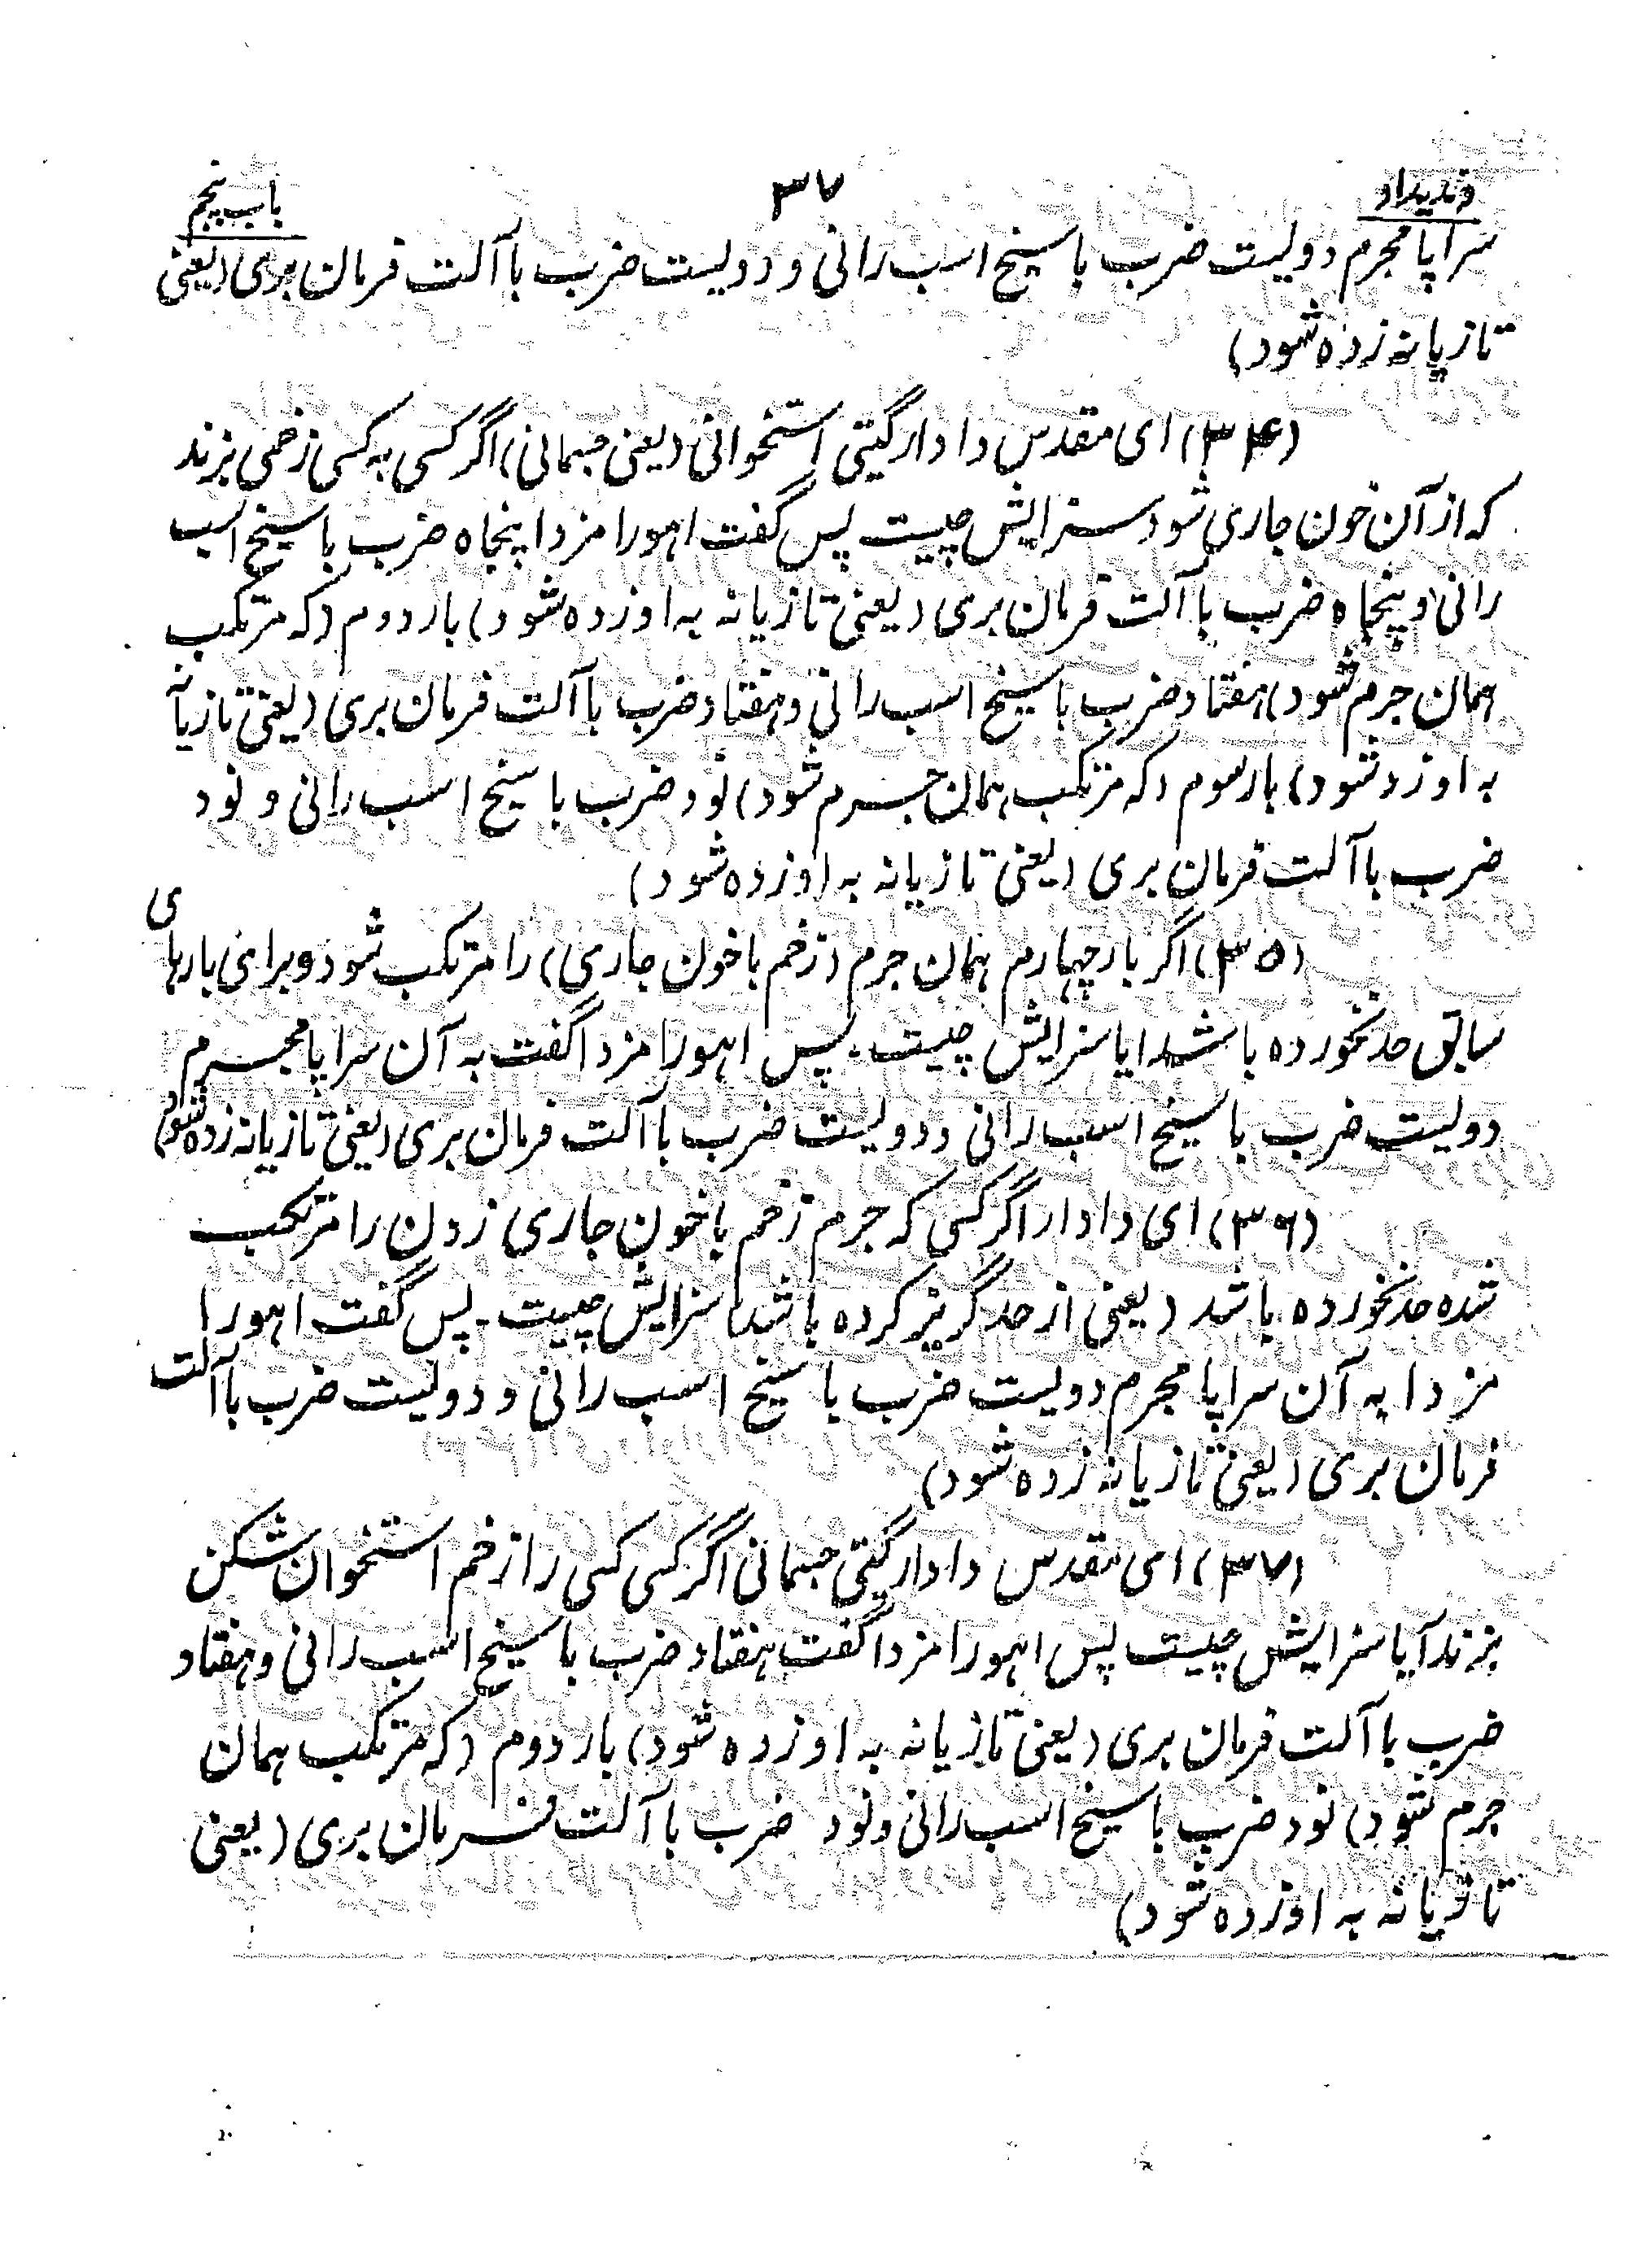 وندیداد ۳۷ باب پنجم
سراپا مجرم دولیست ضرب با سیخ اسب رانی و دولیست ضرب با آلت فرمان بری (یعنی
تازیانه زده شود)
(۳۴) ای مقدس دادار گیتی استخوانی (یعنی جسمانی) اگر کسی به کسی زخمی بزند
که از آن خون جاری شود سزایش چیست پس گفت اهورا مزدا پنجاه ضرب با سیخ اسب
رانی و پنجاه ضرب با آلت فرمان بری (یعنی تازیانه به او زده شود) بار دوم (که مرتکب
همان جرم شود) هفتاد ضرب با سیخ اسب رانی و هفتاد ضرب با آلت فرمان بری (یعنی تازیانه
به او زد شود) بار سوم (که مرتکب همان جرم شود) نود ضرب با سیخ اسب رانی و نود
ضرب با آلت فرمان بری (یعنی تازیانه به او زده شود)
(۳۵) اگر بار چهارم همان جرم (زخم با خون جاری) را مرتکب شود و برای بارهای
سابق حد نخورده باشد ایا سزایش چیست. پس اهورا مزدا گفت به آن سراپا مجرم
دولیست ضرب با سیخ اسب رانی و دولیست ضرب با آلت فرمان بری (یعنی تازیانه زده شود)
(۳۶) ای دادار اگر کسی که جرم زخم با خون جاری زدن را مرتکب
شده حد نخورده باشد (یعنی از حد گریز کرده باشد) سزایش چیست. پس گفت اهورا
مزدا به آن سراپا مجرم دولیست ضرب با سیخ اسب رانی و دولیست ضرب با آلت
فرمان بری (یعنی تازیانه زده شود)
(۳۷) ای مقدس دادار گیتی جسمانی اگر کسی کسی را زخم استخوان شکن
بزند آیا سزایش چیست پس اهورا مزدا گفت هفتاد ضرب با سیخ اسب رانی و هفتاد
ضرب با آلت فرمان بری (یعنی تازیانه به او زده شود) بار دوم (که مرتکب همان
جرم شود) نود ضرب با سیخ اسب رانی و نود ضرب با آلت فرمان بری (یعنی
تازیانه به او زده شود)